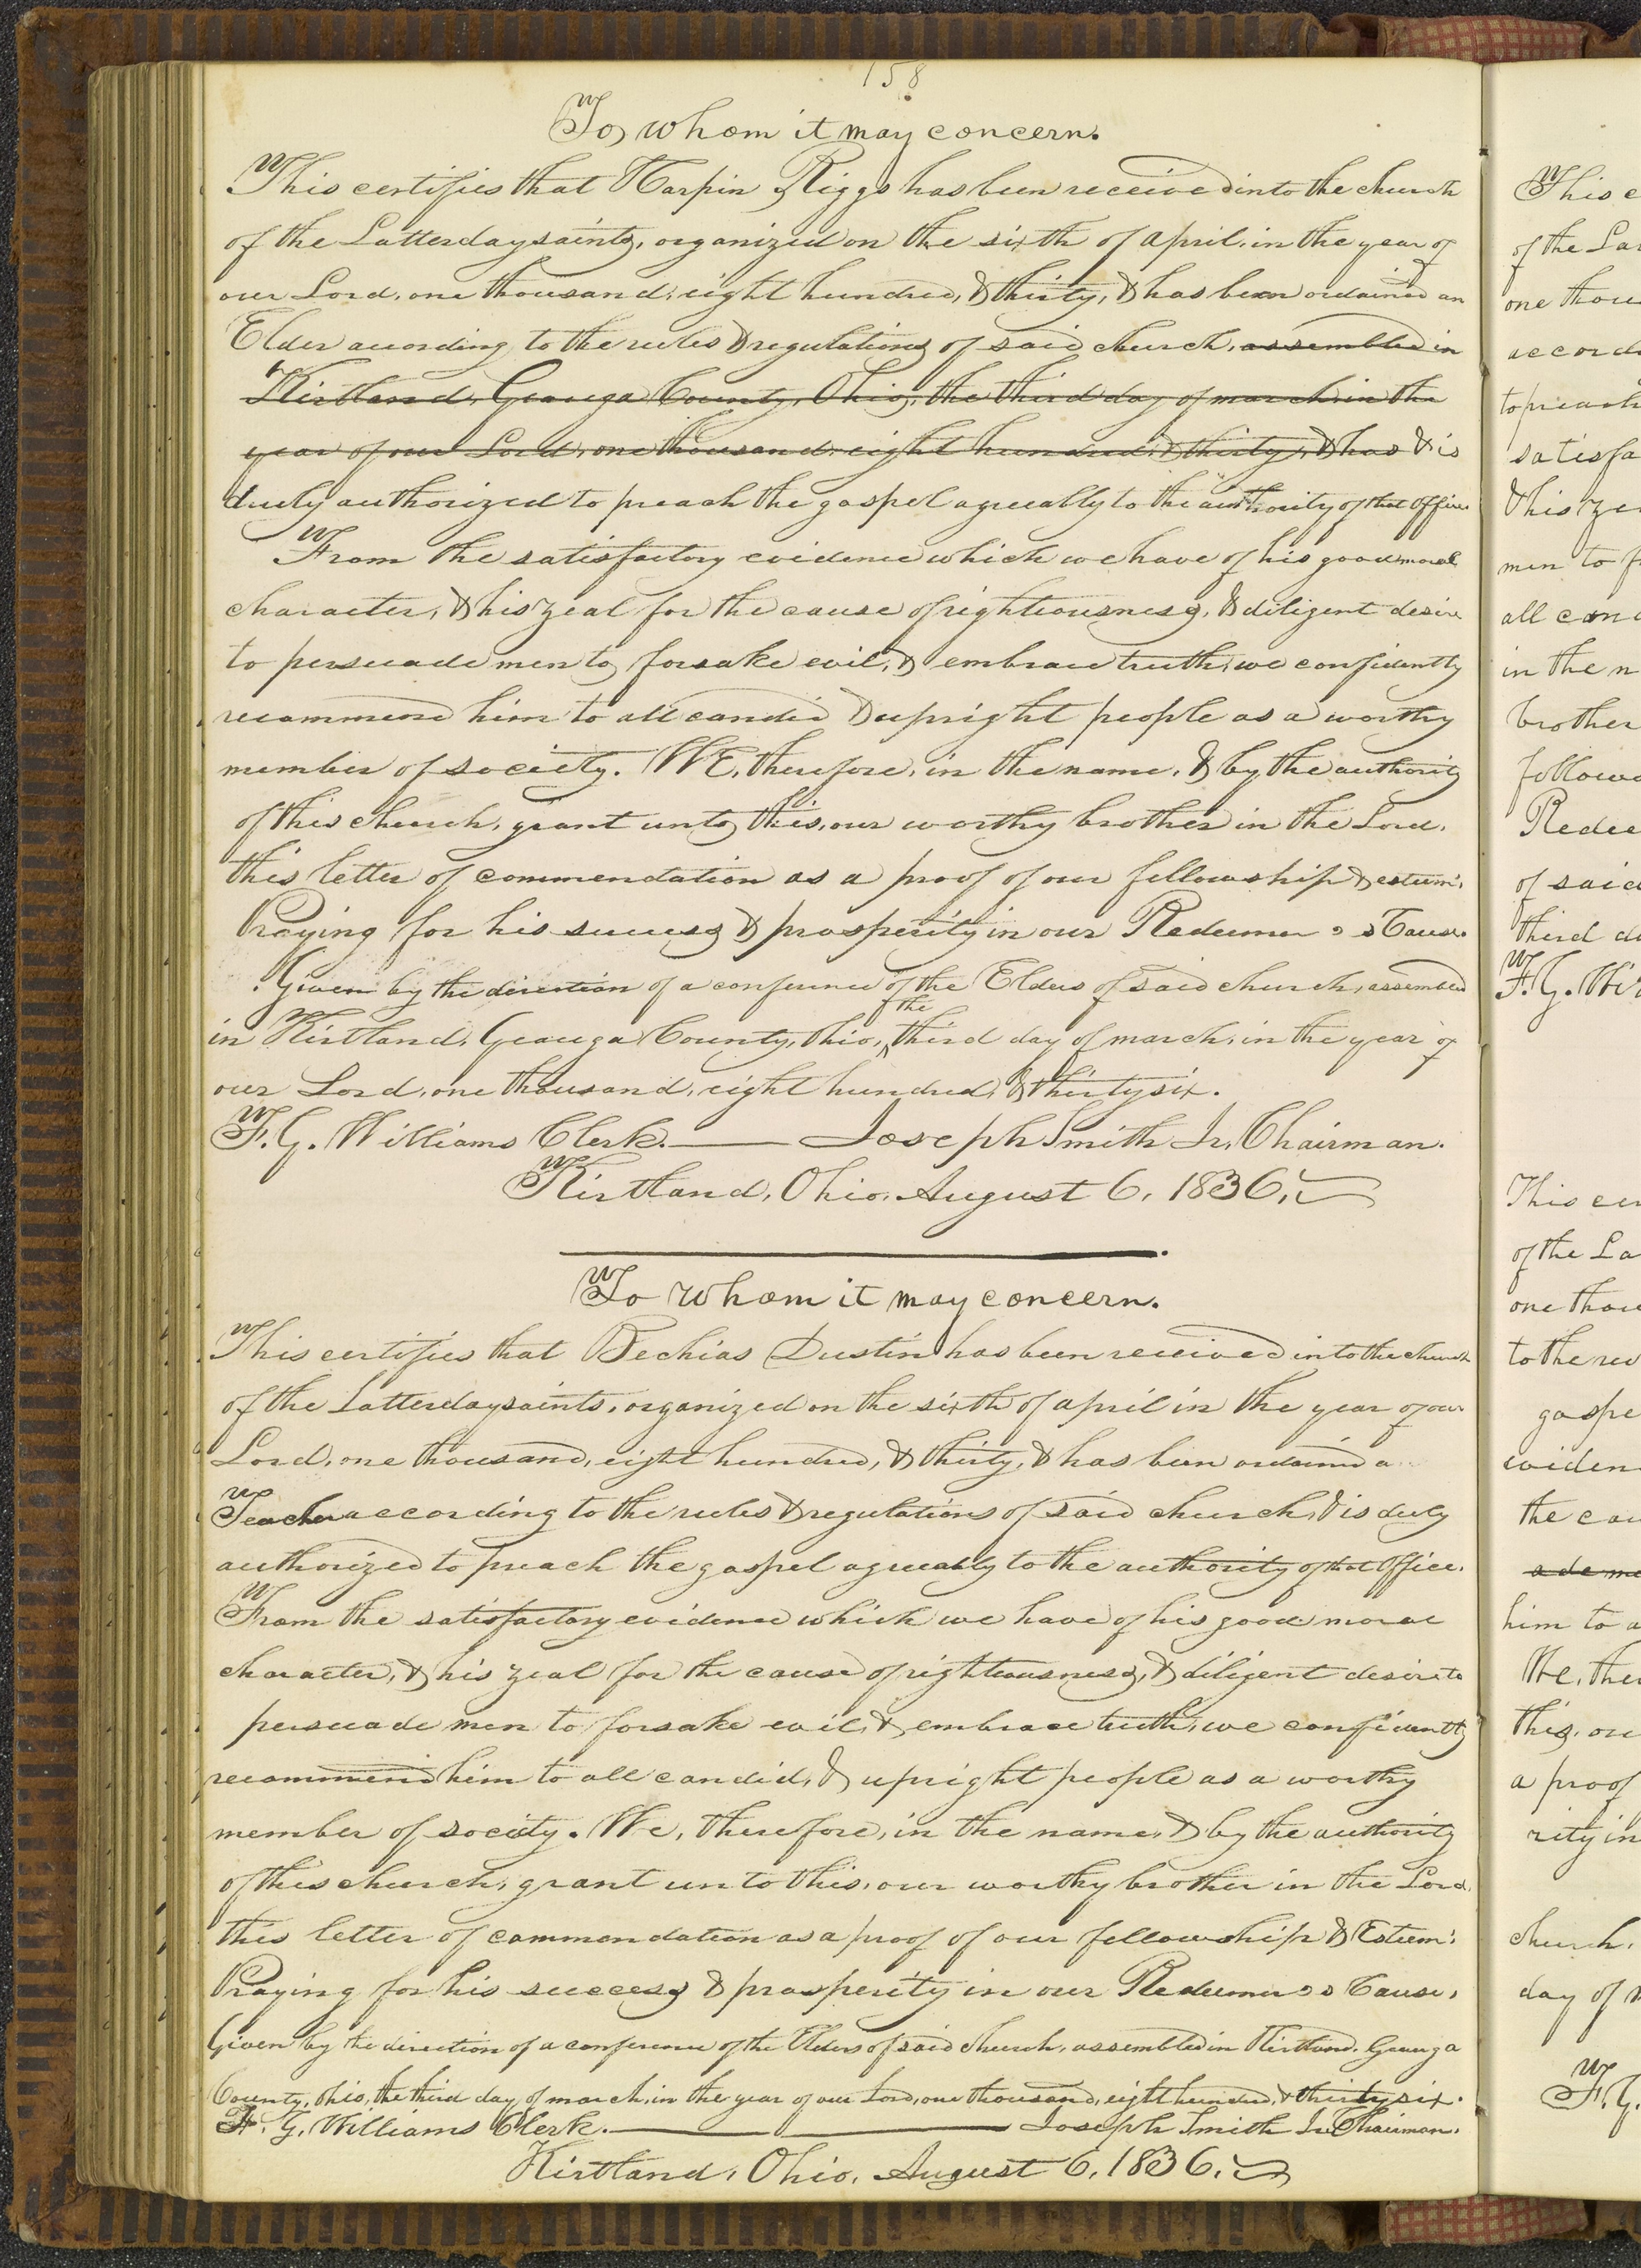 158
To whom it may concern.
This certifies that Harpin Riggs has been received into the church
of the Latterday saints, organized on the sixth of april, in the year of
our Lord, one thousand, eight hundred, & thirty, & has been ordained an
Elder according to the rules & regulations of said church, assembled in
Kirtland, Geauga County, Ohio, the third day of march in the
year of our Lord, one thousand, eight hundred, & thirty, & has & is
duly authorized to preach the gospel agreeably to the authority of that office.
From the satisfactory evidence which we have of his good moral
character, & his zeal for the cause of righteousness, & diligent desire
to persuade men to forsake evil, & embrace truth, we confidently
recommend him to all candid & upright people as a worthy
member of society. WE, therefore, in the name, & by the authority
of this church, grant unto this, our worthy brother in the Lord,
this letter of commendation as a proof of our fellowship & esteem:
Praying for his success & prosperity in our Redeemer's Cause.
Given by the direction of a conference of the Elders of said church, assembled
in Kirtland, Geauga County, Ohio, the third day of march, in the year of
our Lord, one thousand, eight hundred, & thirty six.
F. G. Williams Clerk. Joseph Smith Jr. Chairman.
Kirtland, Ohio, August 6, 1836.
To whom it may concern.
This certifies that Bechias Dustin has been received into the church
of the Latterday saints, organized on the sixth of april in the year of our
Lord, one thousand, eight hundred, & thirty, & has been ordained a
Teacher according to the rules & regulations of said church, & is duly
authorized to preach the gospel agreeably to the authority of that office.
From the satisfactory evidence which we have of his good moral
character, & his zeal for the cause of righteousness, & diligent desire to
persuade men to forsake evil, & embrace truth, we confidently
recommend him to all candid, & upright people as a worthy
member of society. We, therefore, in the name, & by the authority
of this church, grant unto this, our worthy brother in the Lord,
this letter of commendation as a proof of our fellowship & Esteem:
Praying for his success & prosperity in our Redeemer's Cause.
Given by the direction of a conference of the Elders of said church, assembled in Kirtland, Geauga
County, Ohio, the third day of march, in the year of our Lord, one thousand, eight hundred, & thirty six.
F. G. Williams Clerk. Joseph Smith Jr. Chairman.
Kirtland, Ohio, August 6, 1836.
of the
one
to preach
men to
all
in the
brother
of said
third
F. G.
of the
to the
him to a
We,
this, our
a proof
church,
day of
F. G.